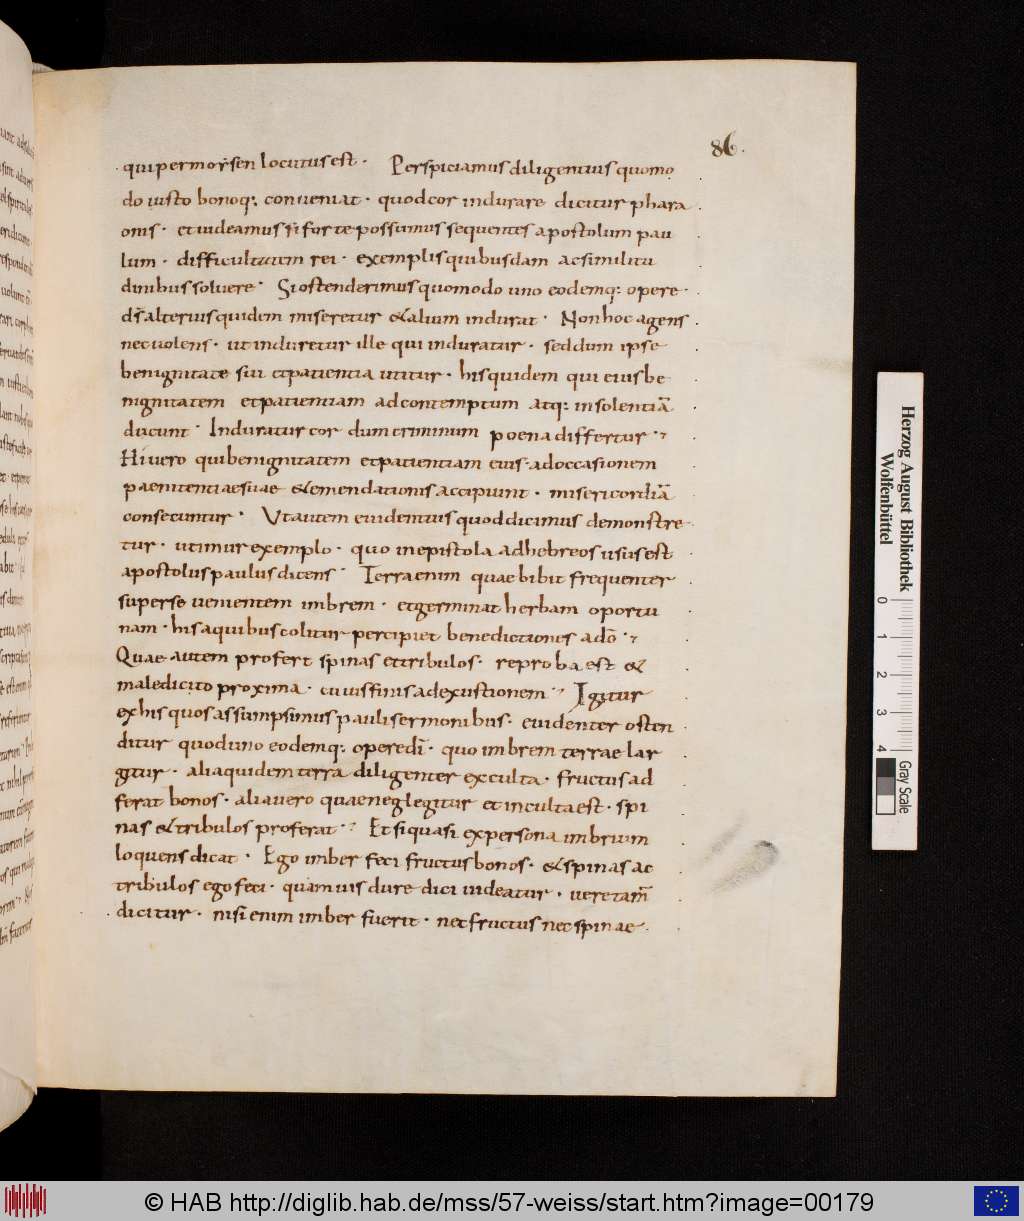 86.
qui per morsen locutus est · Perspiciamus diligentius quomo
do iusto bonoq: conueniat · quod cor indurare dicitur phara
onis · et uideamus si forte possumus sequentes apostolum pau
lum · difficultatem rei · exemplis quibusdam ac similitu
dinibus soluere · Si ostenderimus quomodo uno eodemq: opere ·
dš alterius quidem miseretur & alium indurat · Non hoc agens
nec uolens · ut induretur ille qui induratur · sed dum ipse
benignitate sui et patientia utitur · his quidem qui eius be
nignitatem et patientiam ad contemptum atq: insolentiā
ducunt · Induratur cor dum criminum poena differtur ·
Hi uero qui benignitatem et patientiam eius · ad occasionem
paenitentiae suae & emendationis accipiunt · misericordiā
consecuntur · Ut autem euidentius quod dicimus demonstre
tur · utimur exemplo · quo in epistola ad hebreos usus est
apostolus paulus dicens · Terra enim quae bibit frequenter
super se uenientem imbrem · et germinat herbam oportu
nam · his a quibus colitur percipiet benedictiones a dō ·
Quae autem profert spinas et tribulos · reproba est &
maledicto proxima · cuius finis ad exustionem · Igitur
ex his quos assumpsimus pauli sermonibus · euidenter osten
ditur quod uno eodemq: opere dī · quo imbrem terrae lar
gitur · alia quidem terra diligenter exculta · fructus ad
ferat bonos · alia uero quae neglegitur et inculta est · spi
nas & tribulos proferat · Et si quasi ex persona imbrium
loquens dicat · Ego imber feci fructus bonos · & spinas ac
tribulos ego feci · quamuis dure dici uideatur · uere tam̄
dicitur · nisi enim imber fuerit · nec fructus nec spinae ·
Herzog August Bibliothek
Wolfenbüttel
0 1 2 3 4
Gray Scale
© HAB http://diglib.hab.de/mss/57-weiss/start.htm?image=00179